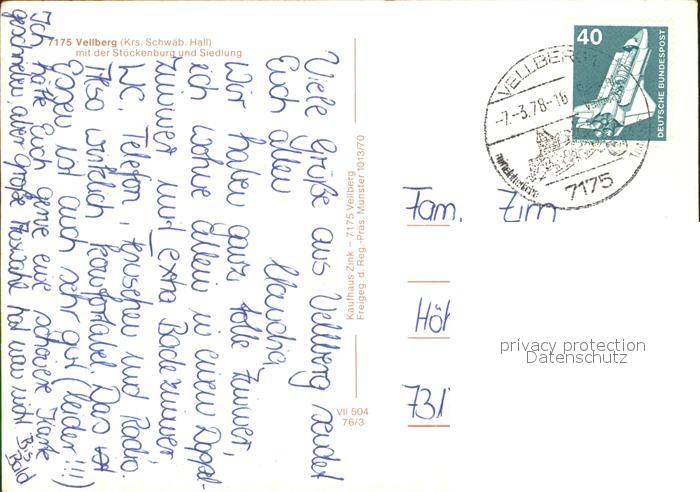 7175 Vellberg (Krs. Schwäb. Hall)
mit der Stöckenburg und Siedlung
Viele Grüße aus Vellberg sendet
Euch allen
Claudia
Wir haben ganz tolle Zimmer,
ich wohne allein in einem Doppel-
zimmer mit extra Badezimmer,
WC, Telefon, Fernseher und Radio.
Also wirklich komfortabel. Das
Essen ist auch sehr gut (leider!!!)
Ich hätte Euch gerne eine schönere Karte
geschrieben, aber große Auswahl hat man nicht. Bis
Bald
Kaufhaus Zink – 7175 Vellberg
Freigeg. d. Reg.-Präs. Münster 1013/70
VII 504
76/3
40
DEUTSCHE BUNDESPOST
VELLBERG
-7.-3.78-18
7175
Fam. Zim
Höh
731
privacy protection
Datenschutz